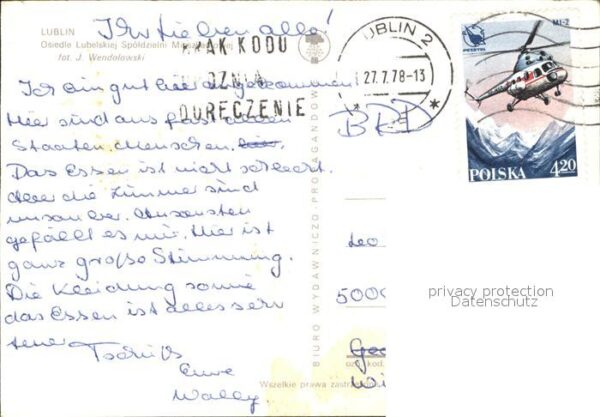 Ihr Lieben alle!
LUBLIN
Osiedle Lubelskiej Spółdzielni
fot. J. Wendołowski
ZNAK KODU
OZNIA
DORĘCZENIE
LUBLIN 2
27.7.78-13
MI-2
POLSKA 4,20
Ich bin gut hier angekommen
Hier sind aus fast allen
Staaten Menschen.
Das Essen ist nicht schlecht.
Aber die Zimmer sind
unsauber. Ansonsten
gefällt es mir. Hier ist
ganz große Stimmung.
Die Kleidung sowie
das Essen ist alles sehr
teuer.
Tschüß
Eure
Wally
BIURO WYDAWNICZO-PROPAGANDOWE
BRD
Leo
5000
privacy protection
Datenschutz
Wszelkie prawa